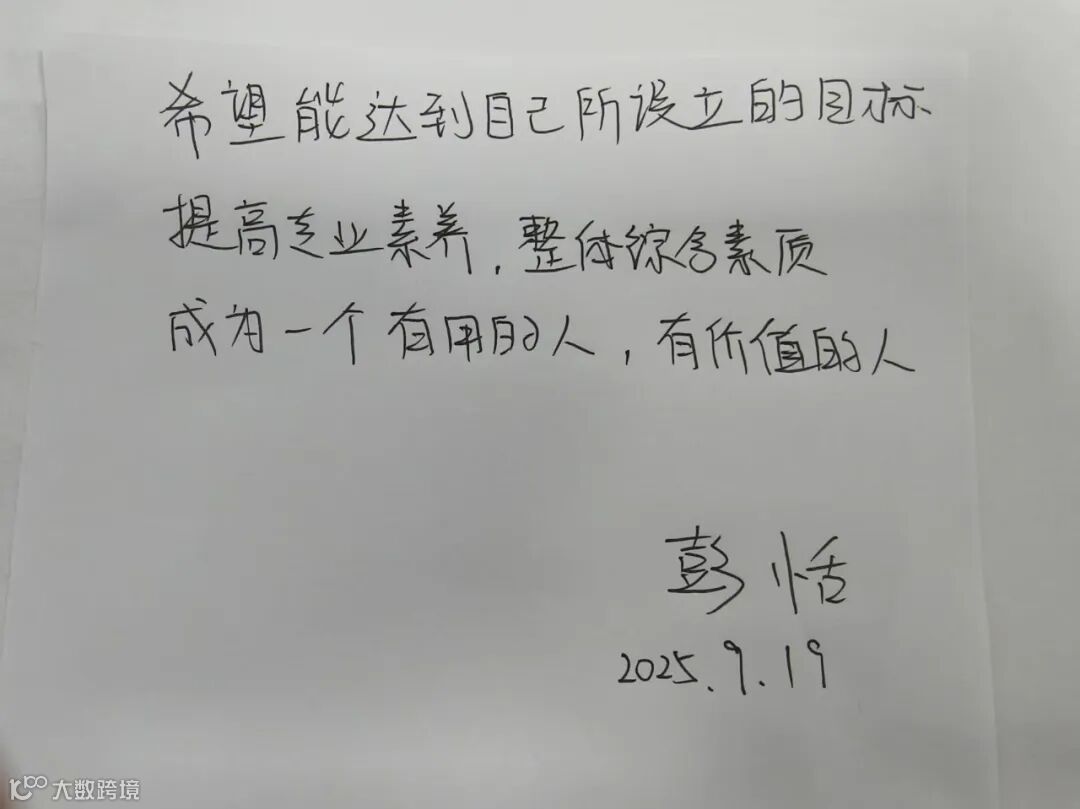 希望能达到自己所设立的目标
提高专业素养，整体综合素质
成为一个有用的人，有价值的人
彭恬
2025.9.19
大数跨境